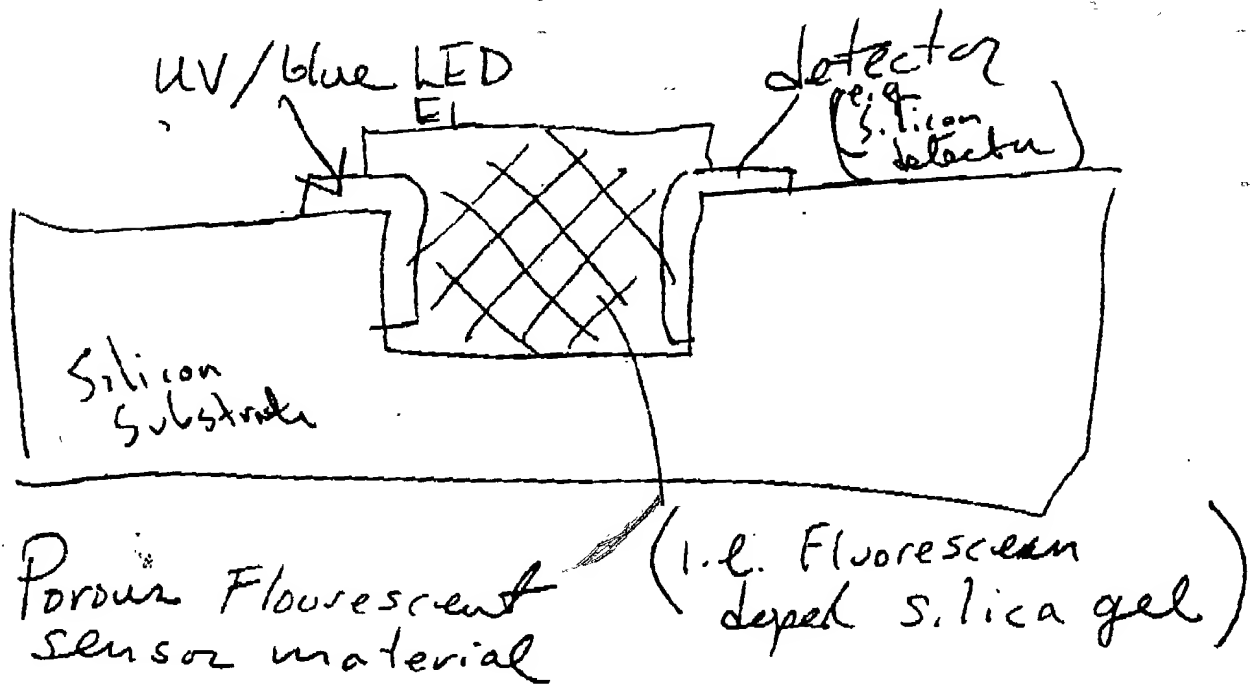 UV/blue LED
EL
detector
(e.g.
silicon
detector)
Silicon
Substrate
Porous Flourescent
sensor material
(i.e. Fluorescein
doped silica gel)